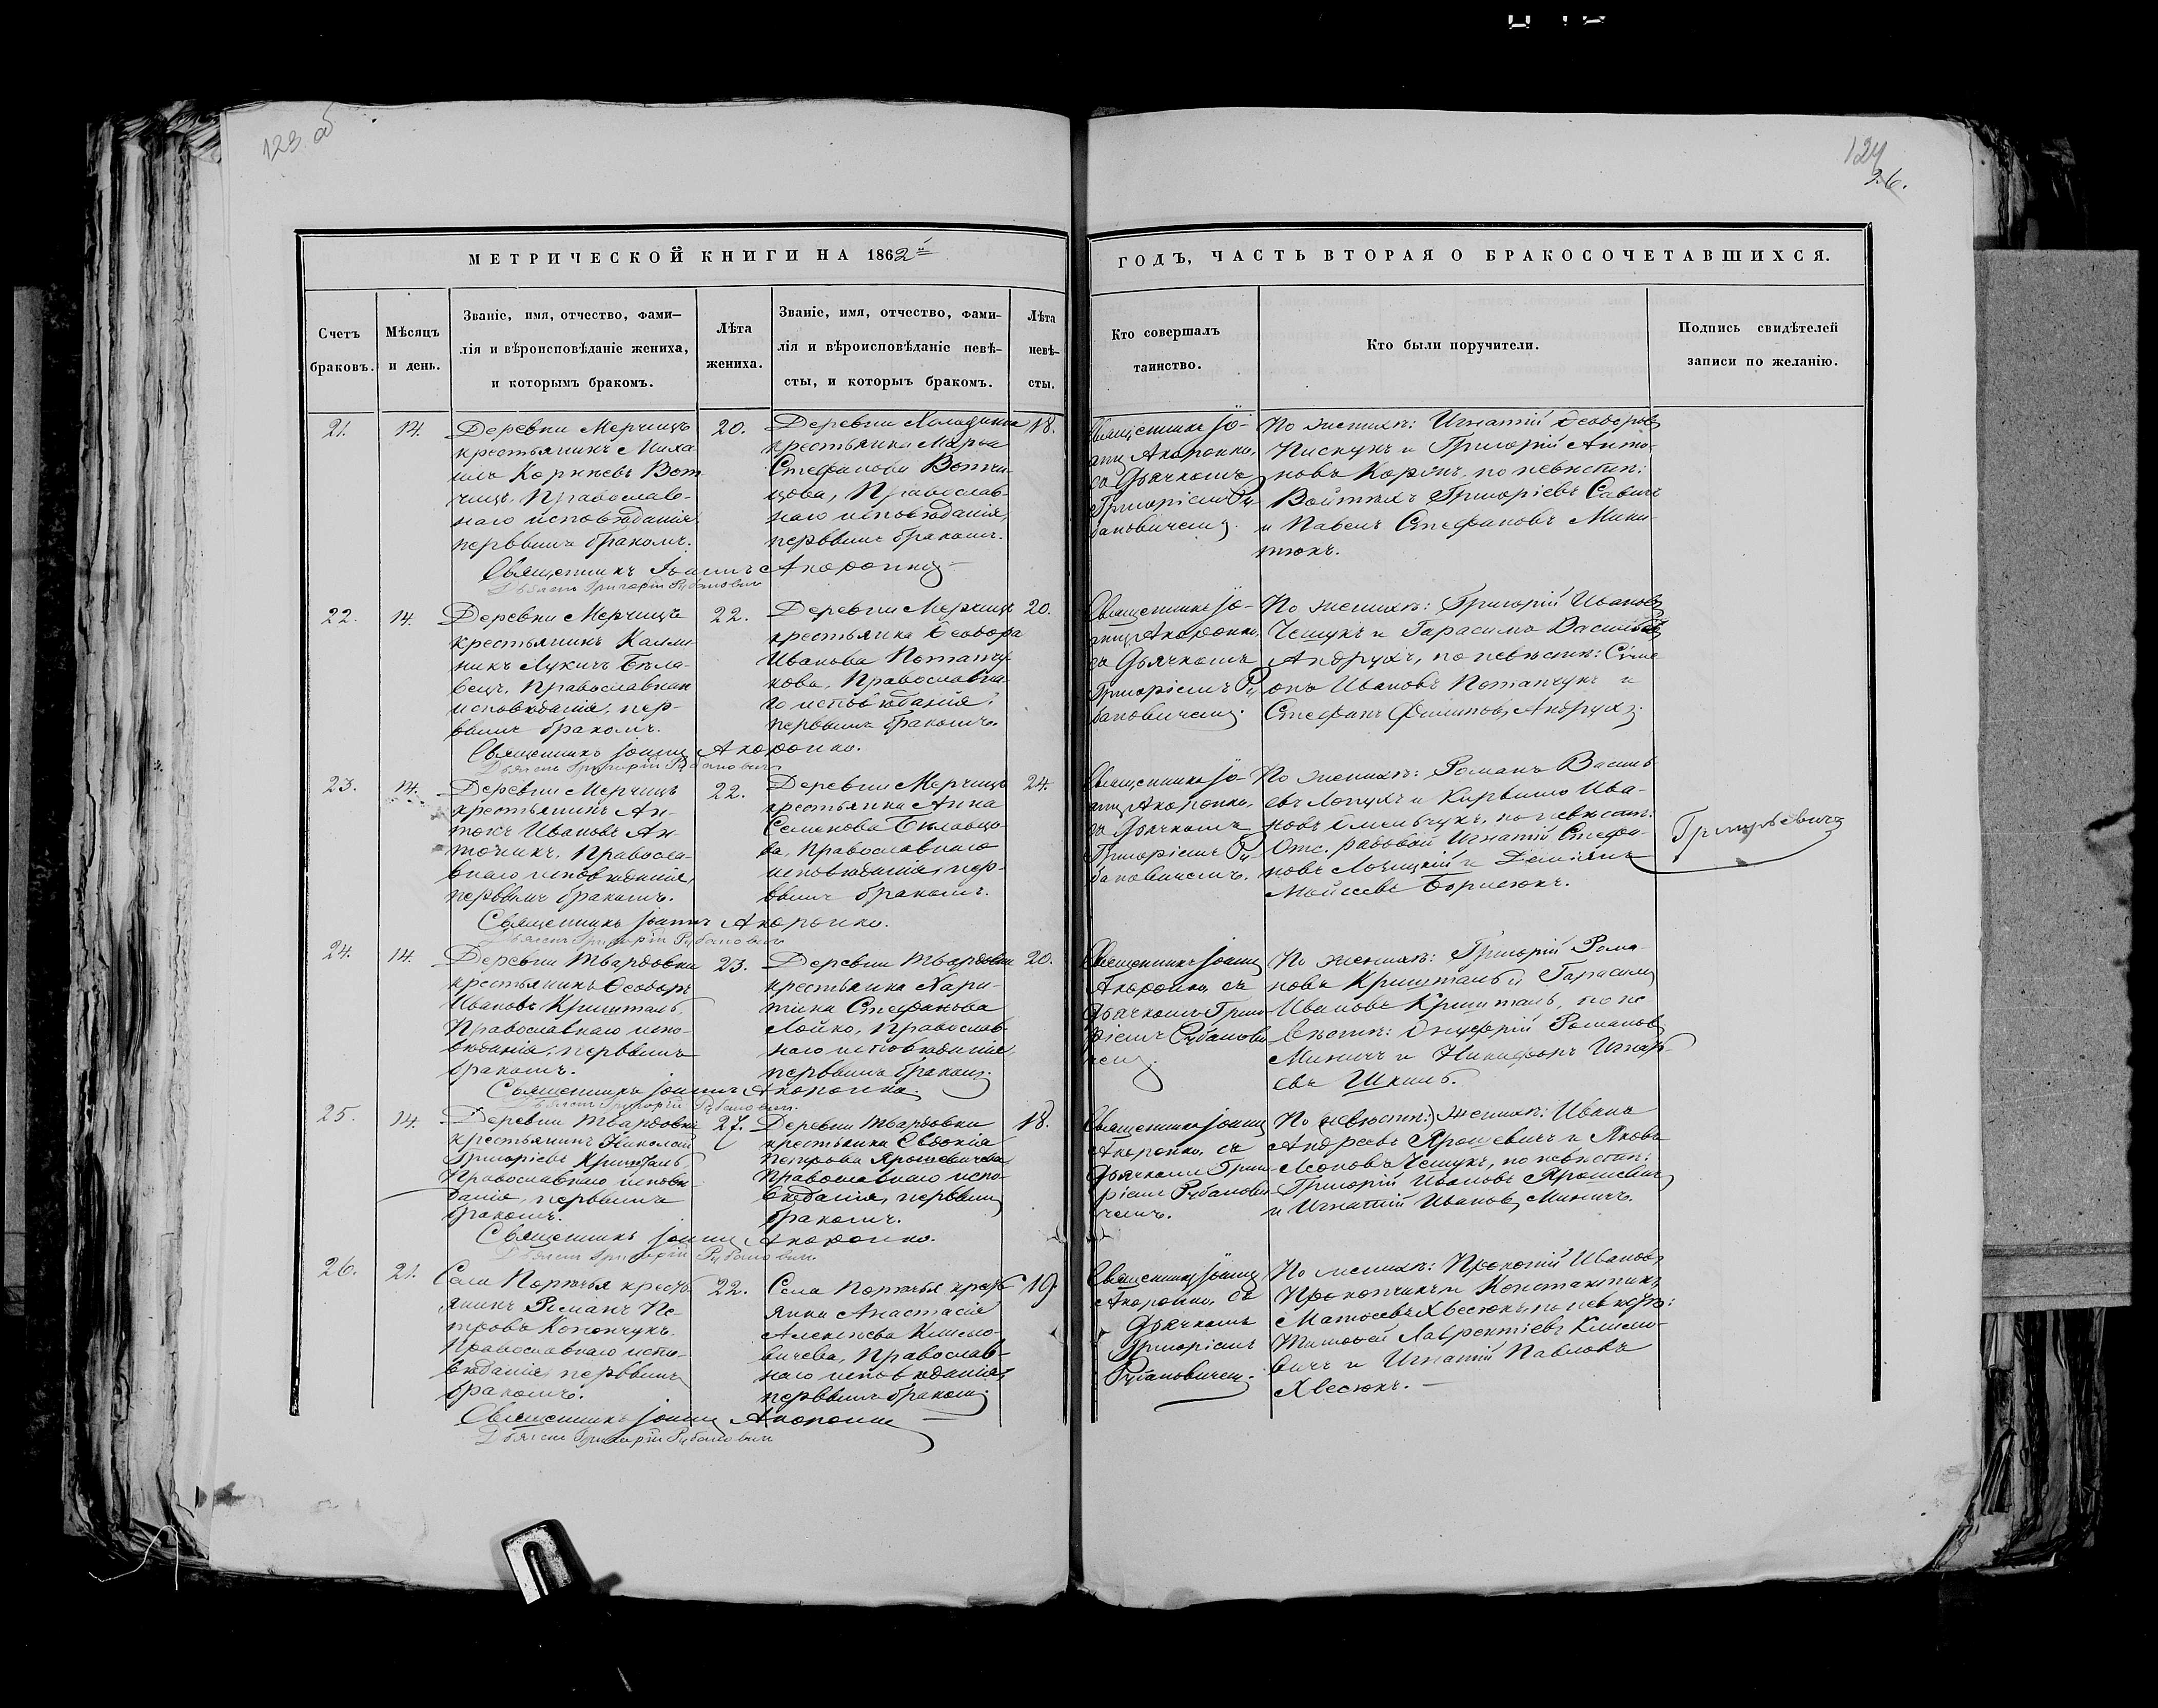 123 об
124
26.
МЕТРИЧЕСКОЙ КНИГИ НА 1862й
ГОДЪ, ЧАСТЬ ВТОРАЯ О БРАКОСОЧЕТАВШИХСЯ.
Счетъ
браковъ.
Мѣсяцъ
и день.
Званіе, имя, отчество, фами-
лія и вѣроисповѣданіе жениха,
и которымъ бракомъ.
Лѣта
жениха.
Званіе, имя, отчество, фами-
лія и вѣроисповѣданіе невѣ-
сты, и которыъ бракомъ.
Лѣта
невѣ-
сты.
Кто совершалъ
таинство.
Кто были поручители.
Подпись свидѣтелей
записи по желанію.
21.
14.
Деревни Мерчицъ
крестьянинъ Миха
илъ Корнѣевъ Вот
чицъ, Православ-
наго исповѣданія
первымъ бракомъ.
20.
Деревни
крестьянка Марья
Стефанова Вотчи-
цова, Православ-
наго исповѣданія,
первымъ бракомъ.
18.
Священникъ Іо-
аннъ
съ Дьячкомъ
Григоріемъ Ру-
бановичемъ.
По женихѣ: Игнатій Ѳеодоровъ
Пискунъ и Григорій Анто-
новъ по невѣстѣ:
Войтѣхъ Григорьевъ Савичъ
и Павелъ Стефановъ Мики-
тюкъ.
Священникъ Іоаннъ
Дьячекъ Григорій Рубановичъ
22.
14.
Деревни Мерчицъ
крестьянинъ Калли
никъ Лукичъ Бѣла-
вецъ, Православнаго
исповѣданія, пер-
вымъ бракомъ.
22.
Деревни Мерчицъ
крестьянка Ѳеодора
Иванова Потапчу-
кова, Православна-
го исповѣданія,
первымъ бракомъ.
20.
Священникъ Іо-
аннъ
съ Дьячкомъ
Григоріемъ Ру-
бановичемъ.
По женихѣ: Григорій Ивановъ
Чешукъ и Гарасимъ Васильевъ
Андрухъ, по невѣстѣ: Симе
онъ Ивановъ Потапчукъ и
Стефанъ Филиповъ Андрухъ.
Священникъ Іоаннъ
Дьячекъ Григорій Рубановичъ
23.
14.
Деревни Мерчицъ
крестьянинъ Ан-
тонъ Ивановъ Ан-
тончикъ, Правосла-
внаго исповѣданія,
первымъ бракомъ.
22.
Деревни Мерчицъ
крестьянка Анна
Семенова Бѣлавцо-
ва, Православнаго
исповѣданія, пер-
вымъ бракомъ.
24.
Священникъ Іо-
аннъ
съ Дьячкомъ
Григоріемъ Ру-
бановичемъ.
По женихѣ: Романъ Василь
евъ Лопухъ и Ива-
новъ Омельчукъ, по невѣстѣ:
Отс. рядовой Игнатій Стефа-
новъ и Демьянъ
Моисеевъ Борисюкъ.
Григорьевичъ
Священникъ Іоаннъ
Дьячекъ Григорій Рубановичъ
24.
14.
Деревни Твардовки
крестьянинъ Ѳеодоръ
Ивановъ Кришталь,
Православнаго испо-
вѣданія, первымъ
бракомъ.
23.
Деревни Твардовки
крестьянка Хари-
тина Стефанова
Лойко, Православ-
наго исповѣданія,
первымъ бракомъ.
20.
Священникъ Іоаннъ
съ
Дьячкомъ Григо-
ріемъ Рубанови-
чемъ.
По женихѣ: Григорій Рома-
новъ Кришталь и Гарасимъ
Ивановъ Кришталь, по не
вѣстѣ: Онуфрій Романовъ
Миничъ и Никифоръ Игнать-
евъ Шкиль.
Священникъ Іоаннъ
Дьячекъ Григорій Рубановичъ.
25.
14.
Деревни Твардовки
крестьянинъ Николай
Григорьевъ Кришталь,
Православнаго исповѣ
данія, первымъ
бракомъ.
27.
Деревни Твардовки
крестьянка Евдокія
Петрова Ярошевичева
Православнаго испо-
вѣданія, первымъ
бракомъ.
18.
Священникъ Іоаннъ
съ
Дьячкомъ Григо
ріемъ Рубанови-
чемъ.
По (невѣстѣ:) женихѣ: Иванъ
Андреевъ Ярошевичъ и Яковъ
Чешукъ, по невѣстѣ:
Григорій Ивановъ Ярошевичъ
и Игнатій Ивановъ Миничъ.
Священникъ Іоаннъ
Дьячекъ Григорій Рубановичъ
26.
21.
Села Порѣчья кресть
янинъ Романъ Пе-
тровъ Конончукъ,
Православнаго испо-
вѣданія, первымъ
бракомъ.
22.
Села Порѣчья кресть
янка Анастасія
Алексѣева Климо-
вичева, Православ-
наго исповѣданія,
первымъ бракомъ.
19.
Священникъ Іоаннъ
съ
Дьячкомъ
Григоріемъ
Рубановичемъ.
По женихѣ: Прокопій Ивановъ
и Константинъ
Матѳеевъ Хвесюкъ, по невѣстѣ:
Тимоѳей Лаврентіевъ Климо-
вичъ и Игнатій Павловъ
Хвесюкъ.
Священникъ Іоаннъ
Дьячекъ Григорій Рубановичъ